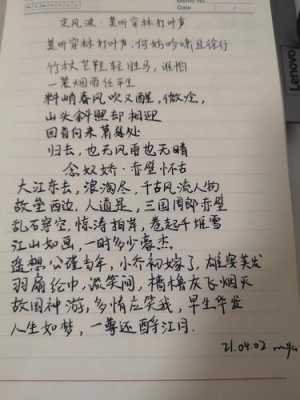 Date
Lenovo
定风波·莫听穿林打叶声
莫听穿林打叶声,何妨吟啸且徐行
竹杖芒鞋轻胜马,谁怕
一蓑烟雨任平生
料峭春风吹又醒,微冷,
山头斜照却相迎
回首向来萧瑟处
归去,也无风雨也无晴
念奴娇·赤壁怀古
大江东去,浪淘尽,千古风流人物
故垒西边,人道是,三国周郎赤壁
乱石穿空,惊涛拍岸,卷起千堆雪
江山如画,一时多少豪杰
遥想公瑾当年,小乔初嫁了,雄姿英发
羽扇纶巾,谈笑间,樯橹灰飞烟灭
故国神游,多情应笑我,早生华发
人生如梦,一尊还酹江月.
21.04.02